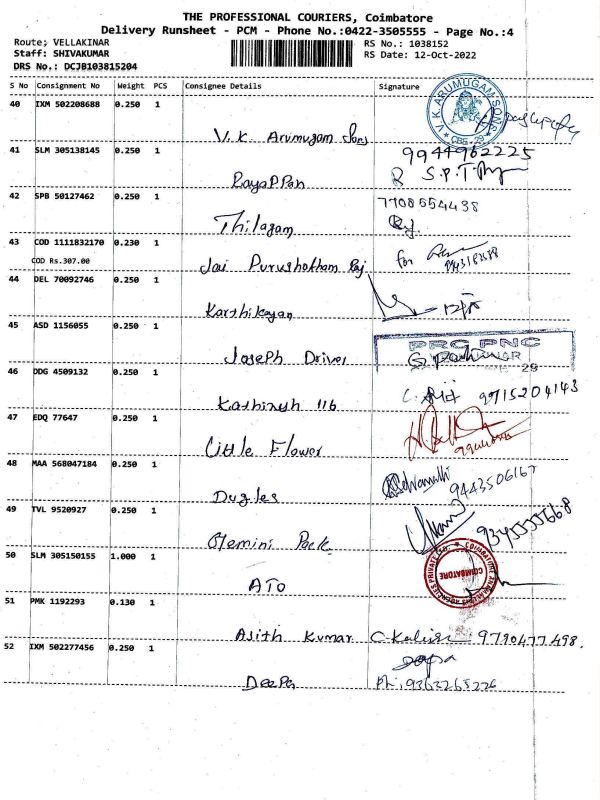 THE PROFESSIONAL COURIERS, Coimbatore
Delivery Runsheet - PCM - Phone No.:0422-3505555 - Page No.:4
Route; VELLAKINAR
RS No.: 1038152
Staff: SHIVAKUMAR
RS Date: 12-Oct-2022
DRS No.: DCJB103815204
S No Consignment No Weight PCS Consignee Details Signature
40 IXM 502208688 0.250 1
V.K. Arumugam Sons
V.K. ARUMUGAM SONS
CBE-29
9944962225
41 SLM 305138145 0.250 1
RayaPPan
S.P.T
42 SPB 50127462 0.250 1
7708554438
Thilagam
43 COD 1111832170 0.230 1
COD Rs.307.00
Jai Purushotham Raj
for
44 DEL 70092746 0.250 1
Karthikayan
45 ASD 1156055 0.250 1
PRG PNC
JoSePh Driver
29
46 DDG 4509132 0.250 1
Kathiresh 116
9715204143
47 EDQ 77647 0.250 1
Little Flower
48 MAA 568047184 0.250 1
Selvamathi
9443506167
Dugles
49 TVL 9520927 0.250 1
Gemini Pack
50 SLM 305150155 1.000 1
COIMBATORE
ATO
51 PMK 1192293 0.130 1
Ajith Kumar
9790477498.
52 IXM 502277456 0.250 1
DeePa
Ph: 9363265226